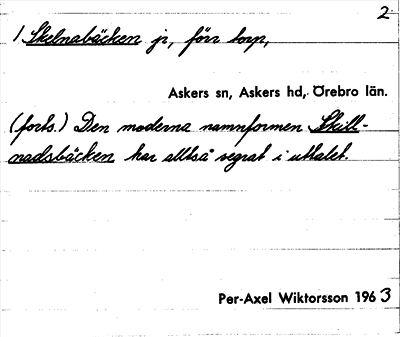 2
1 Skelnabäcken jr, förr torp,
Askers sn, Askers hd, Örebro län.
(forts.) Den moderna namnformen Skill-
nadsbäcken har alltså segrat i uttalet.
Per-Axel Wiktorsson 1963